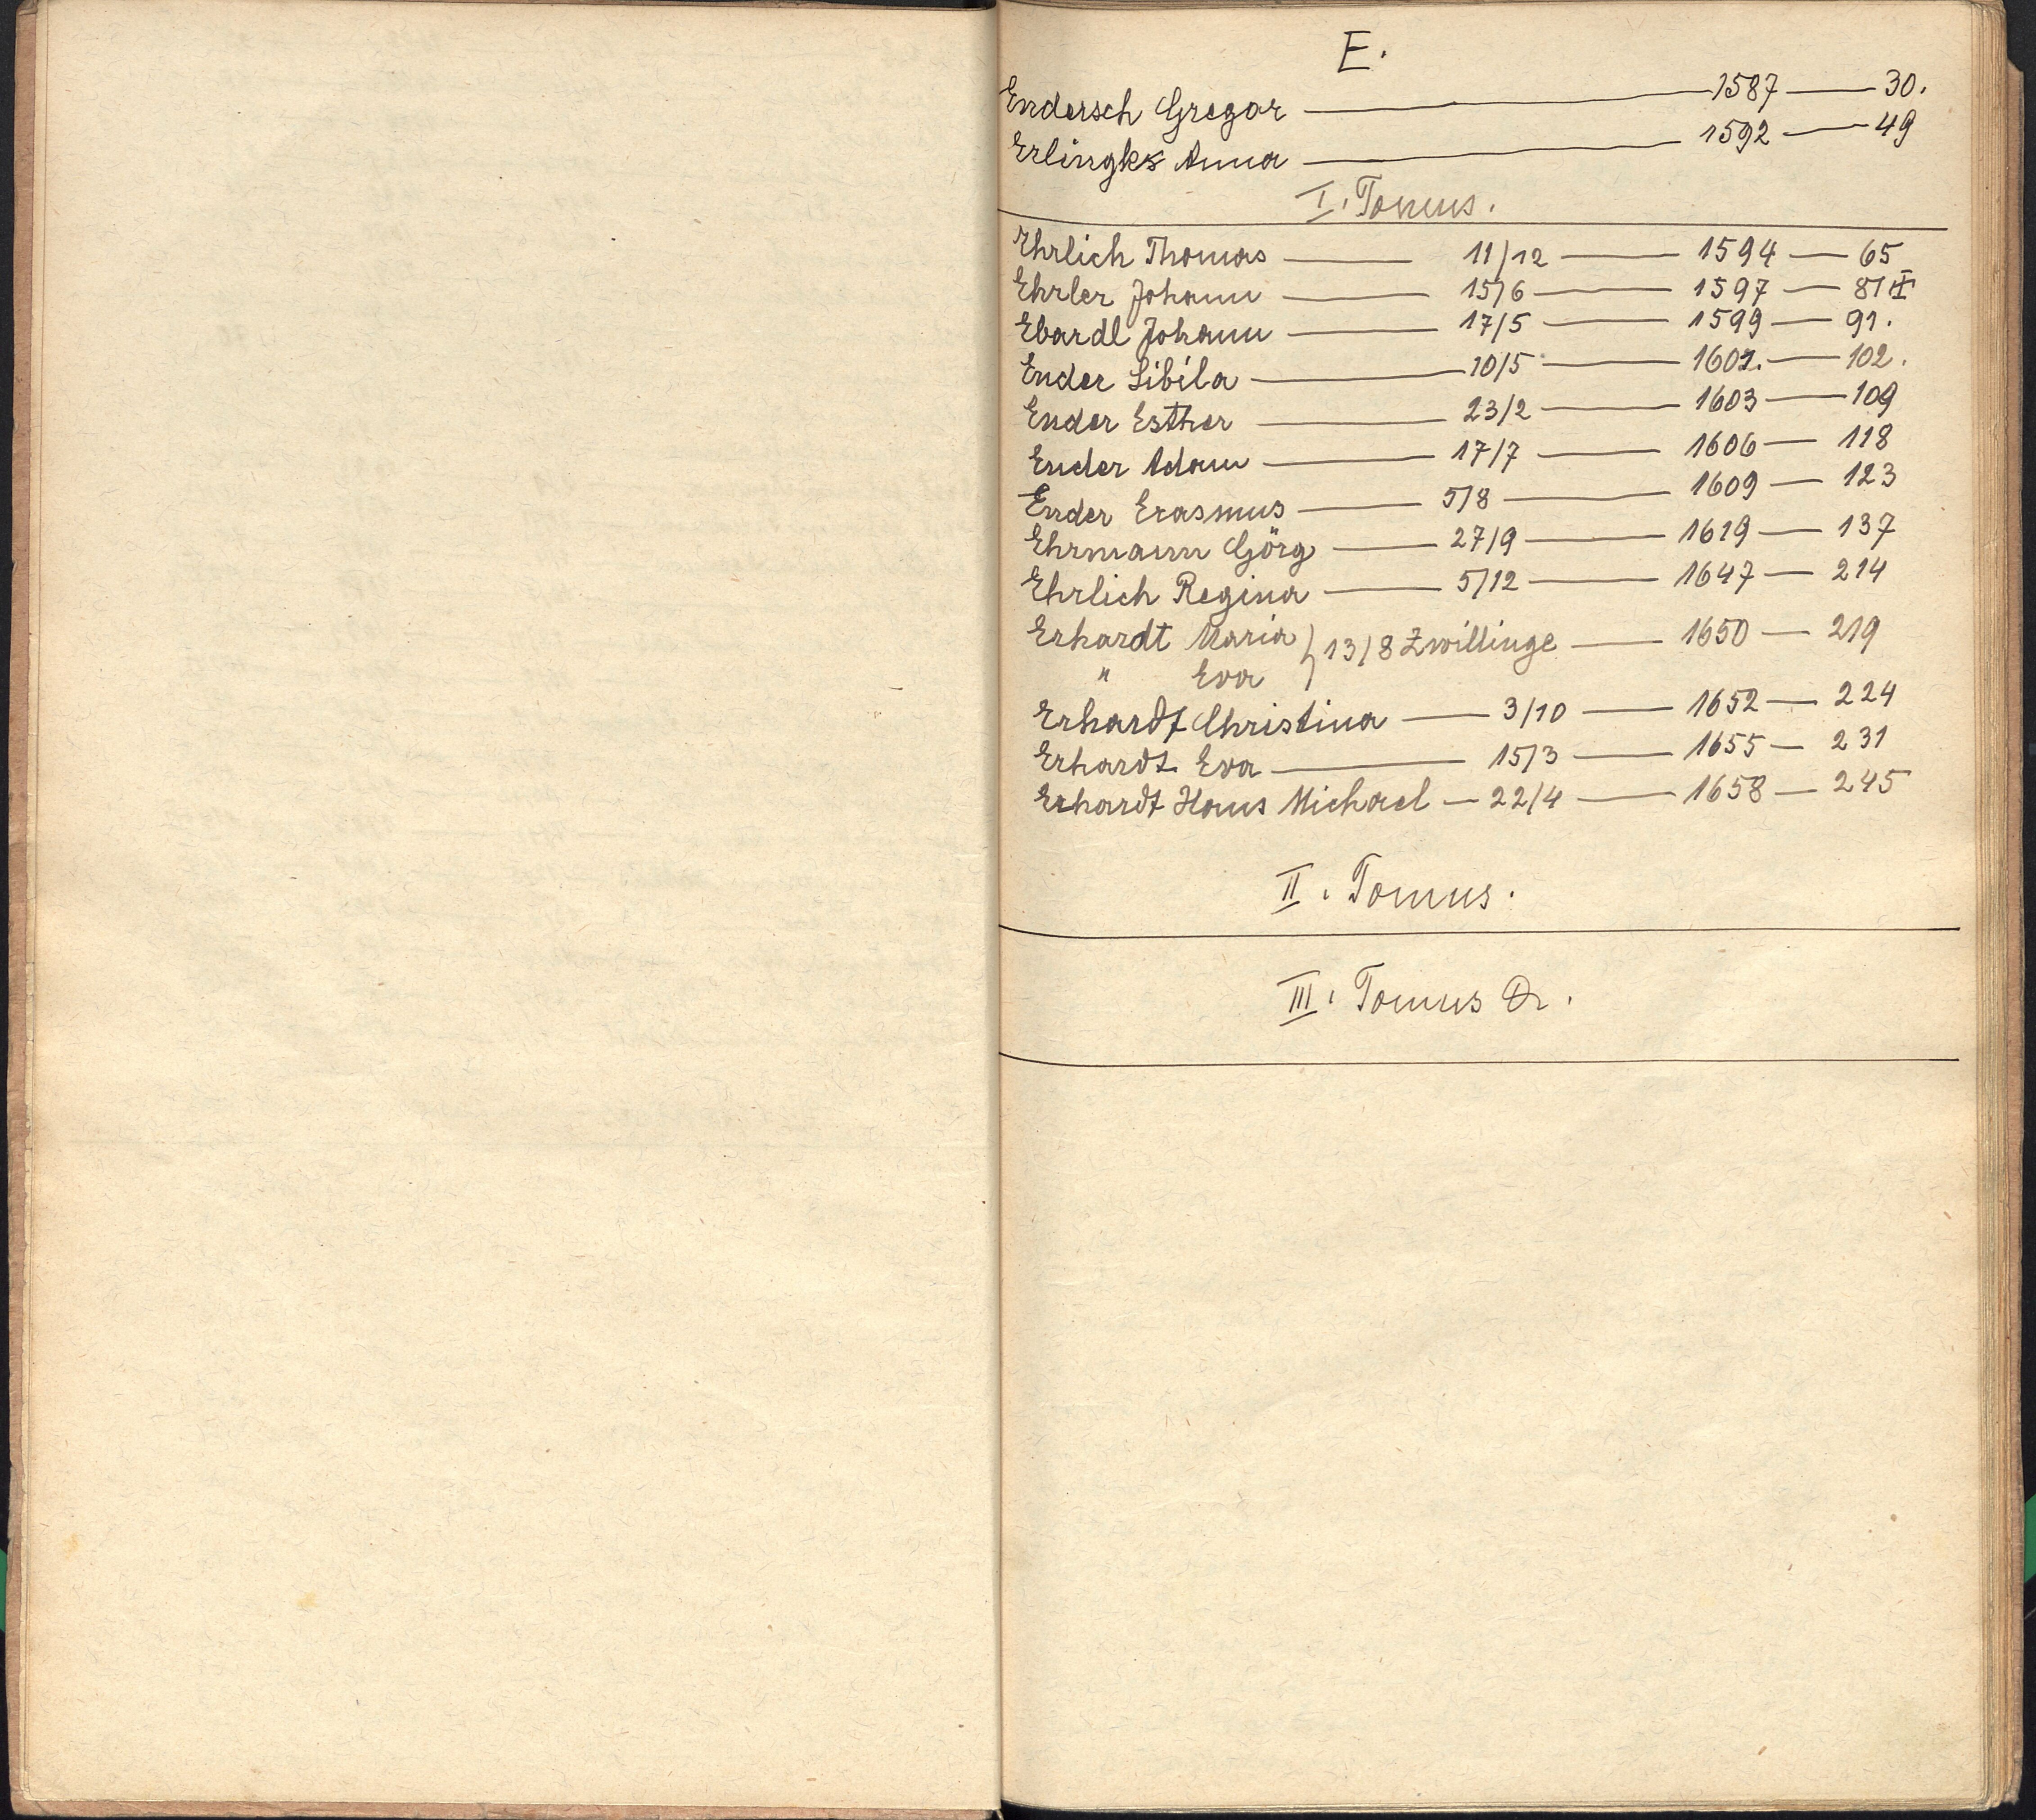 E.
Endersch Gregor — 1587 — 30.
Erlingks Anna — 1592 — 49
I. Tomus.
Ehrlich Thomas — 11/12 — 1594 — 65
Ehrler Johann — 15/6 — 1597 — 87 II
Ebardl Johann — 17/5 — 1599 — 91.
Ender Sibila — 10/5 — 1601. — 102.
Ender Esther — 23/2 — 1603 — 109
Ender Adam — 17/7 — 1606 — 118
Ender Erasmus — 5/8 — 1609 — 123
Ehrmann Görg — 27/9 — 1619 — 137
Ehrlich Regina — 5/12 — 1647 — 214
Erhardt Maria } 13/8 Zwillinge — 1650 — 219
" Eva
Erhardt Christina — 3/10 — 1652 — 224
Erhardt Eva — 15/3 — 1655 — 231
Erhardt Hans Michael — 22/4 — 1658 — 245
II. Tomus.
III. Tomus